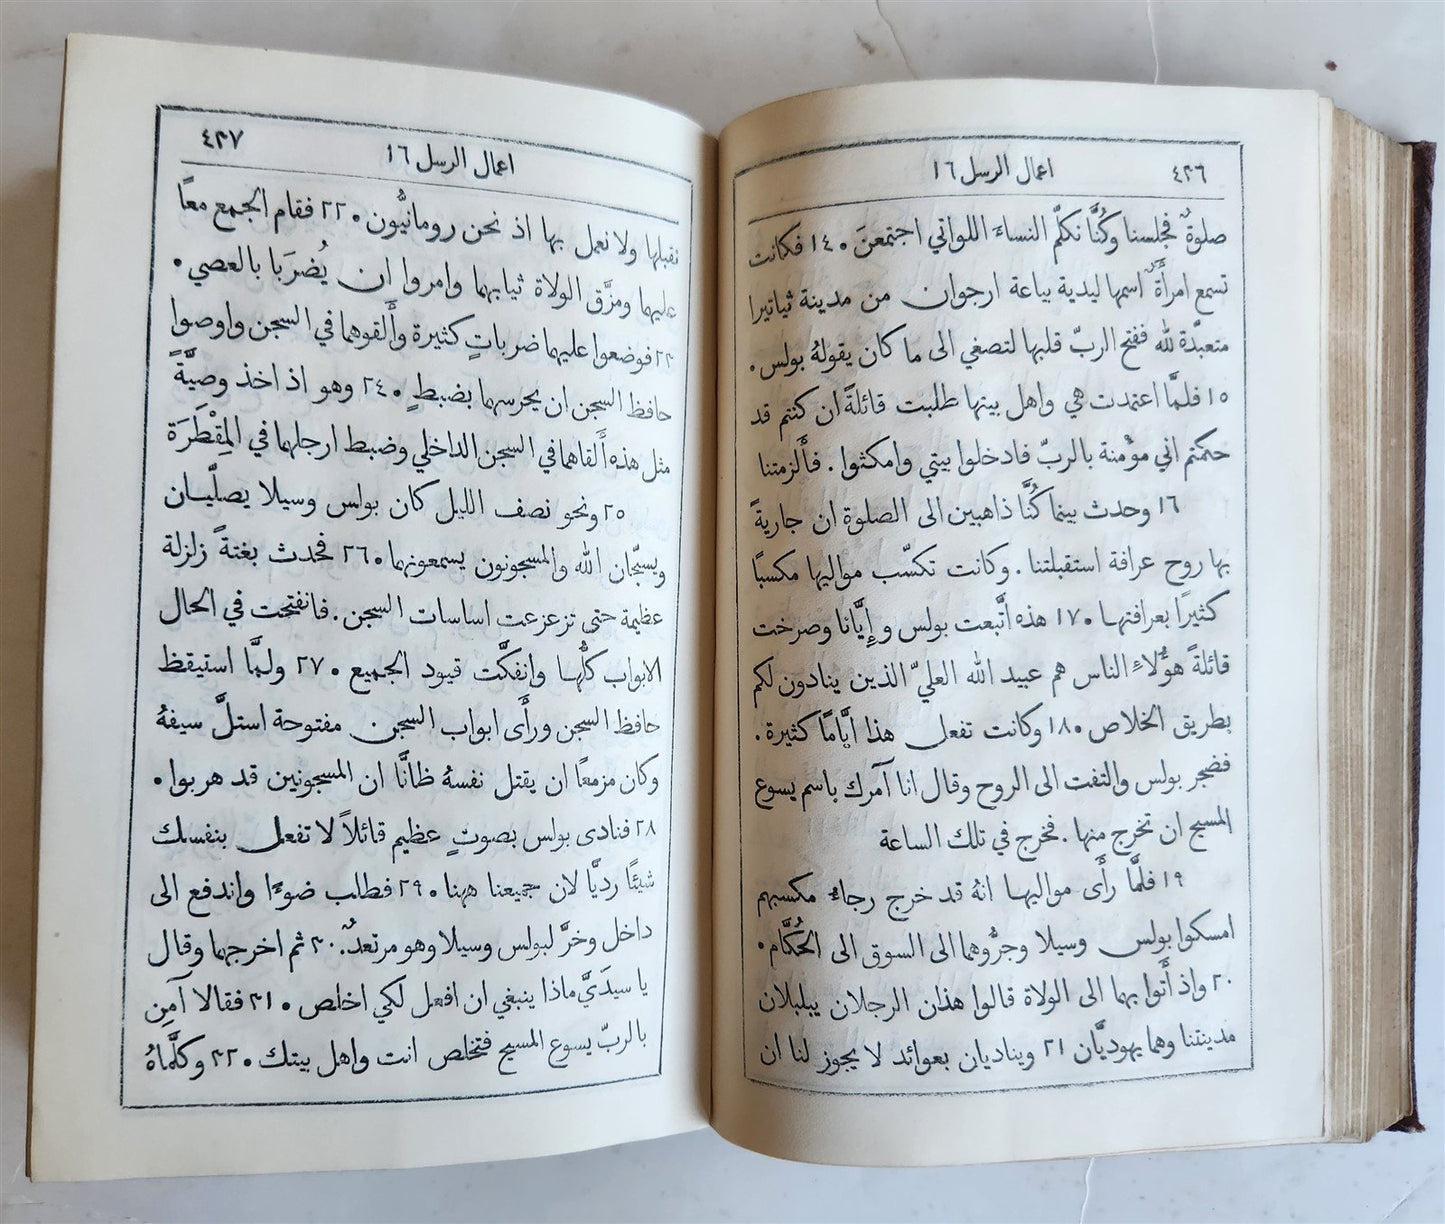 ٤٣٦
اعمال الرسل ١٦
صلوةٌ فجلسنا وكُنَّا نكلّم النساءَ اللواتي اجتمعنَ ٠ ١٤ فكانت
تسمع امرأَةٌ اسمها ليدية بياعة ارجوان من مدينة ثياتيرا
متعبدّة لله ففتح الربّ قلبها لتصغي الى ما كان يقولهُ بولس ٠
١٥ فلمَّا اعتمدت هي واهل بيتها طلبت قائلةً ان كنتم قد
حكمتم اني مؤْمنة بالربّ فادخلوا بيتي وامكثوا . فأَلزمتنا
١٦ وحدث بينما كُنَّا ذاهبين الى الصلوة ان جاريةً
بها روح عرافة استقبلتنا . وكانت تكسّب مواليها مكسبًا
كثيرًا بعرافتها ٠ ١٧ هذه اتَّبعت بولس وإِيَّانا وصرخت
قائلةً هؤُلاءِ الناس هم عبيد الله العليّ الذين ينادون لكم
بطريق الخلاص ٠ ١٨ وكانت تفعل هذا ايَّامًا كثيرة .
فضجر بولس والتفت الى الروح وقال انا آمرك باسم يسوع
المسيح ان تخرج منها . فخرج في تلك الساعة
١٩ فلمَّا رأَى مواليها انهُ قد خرج رجاءُ مكسبهم
امسكوا بولس وسيلا وجرُّوهما الى السوق الى الحُكَّام ٠
٢٠ واذ أَتوا بهما الى الولاة قالوا هذان الرجلان يبلبلان
مدينتنا وهما يهوديَّان ٢١ ويناديان بعوائد لا يجوز لنا ان
٤٣٧
اعمال الرسل ١٦
نقبلها ولا نعمل بها اذ نحن رومانيُّون ٠ ٢٢ فقام الجمع معًا
عليهما ومزَّق الولاة ثيابهما وامروا ان يُضرَبا بالعصي ٠
٢٣ فوضعوا عليهما ضرباتٍ كثيرة وأَلقوهما في السجن واوصوا
حافظ السجن ان يحرسهما بضبطٍ ٠ ٢٤ وهو اذ اخذ وصيَّةً
مثل هذه أَلقاهما في السجن الداخلي وضبط ارجلهما في المِقْطَرَة
٢٥ ونحو نصف الليل كان بولس وسيلا يصلّيان
ويسبّحان الله والمسجونون يسمعونهما ٠ ٢٦ فحدث بغتةً زلزلة
عظيمة حتى تزعزعت اساسات السجن . فانفتحت في الحال
الابواب كلُّها وانفكَّت قيود الجميع ٠ ٢٧ ولمَّا استيقظ
حافظ السجن ورأَى ابواب السجن مفتوحة استلَّ سيفهُ
وكان مزمعًا ان يقتل نفسهُ ظانًّا ان المسجونين قد هربوا ٠
٢٨ فنادى بولس بصوتٍ عظيم قائلاً لا تفعل بنفسك
شيئًا رديًّا لان جميعنا ههنا ٠ ٢٩ فطلب ضوءًا واندفع الى
داخل وخرَّ لبولس وسيلا وهو مرتعدٌ . ٣٠ ثم اخرجهما وقال
يا سيدَيَّ ماذا ينبغي ان افعل لكي اخلص ٠ ٣١ فقالا آمِن
بالربّ يسوع المسيح فتخلص انت واهل بيتك ٠ ٣٢ وكلَّماهُ